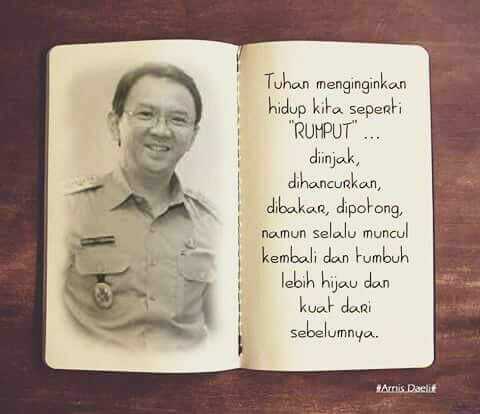 Tuhan menginginkan
hidup kita seperti
"RUMPUT" ...
diinjak,
dihancurkan,
dibakar, dipotong,
namun selalu muncul
kembali dan tumbuh
lebih hijau dan
kuat dari
sebelumnya.
#Arnis Daeli#